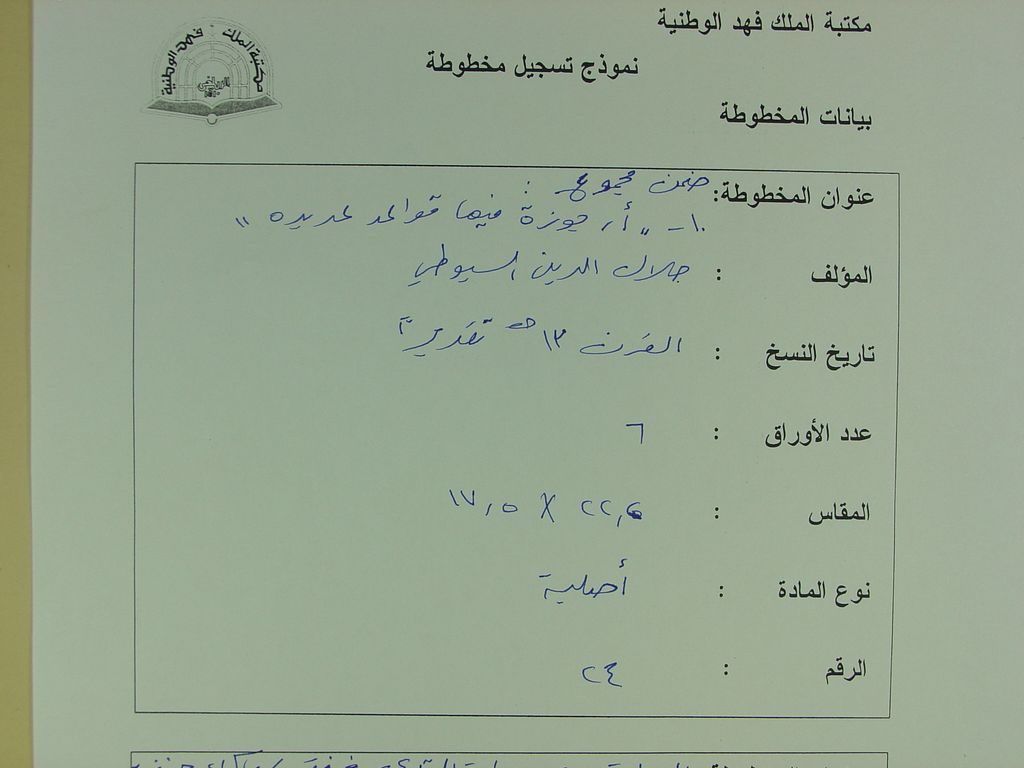 مكتبة الملك فهد الوطنية
نموذج تسجيل مخطوطة
مكتبة الملك فهد الوطنية
الرياض
بيانات المخطوطة
عنوان المخطوطة: ضمن مجموع :
١- "أرجوزة فيها قواعد عديده"
المؤلف : جلال الدين السيوطي
تاريخ النسخ : القرن ١٣هـ تقديراً
عدد الأوراق : ٦
المقاس : ٢٢,٥ X ١٧,٥
نوع المادة : أصلية
الرقم : ٢٤